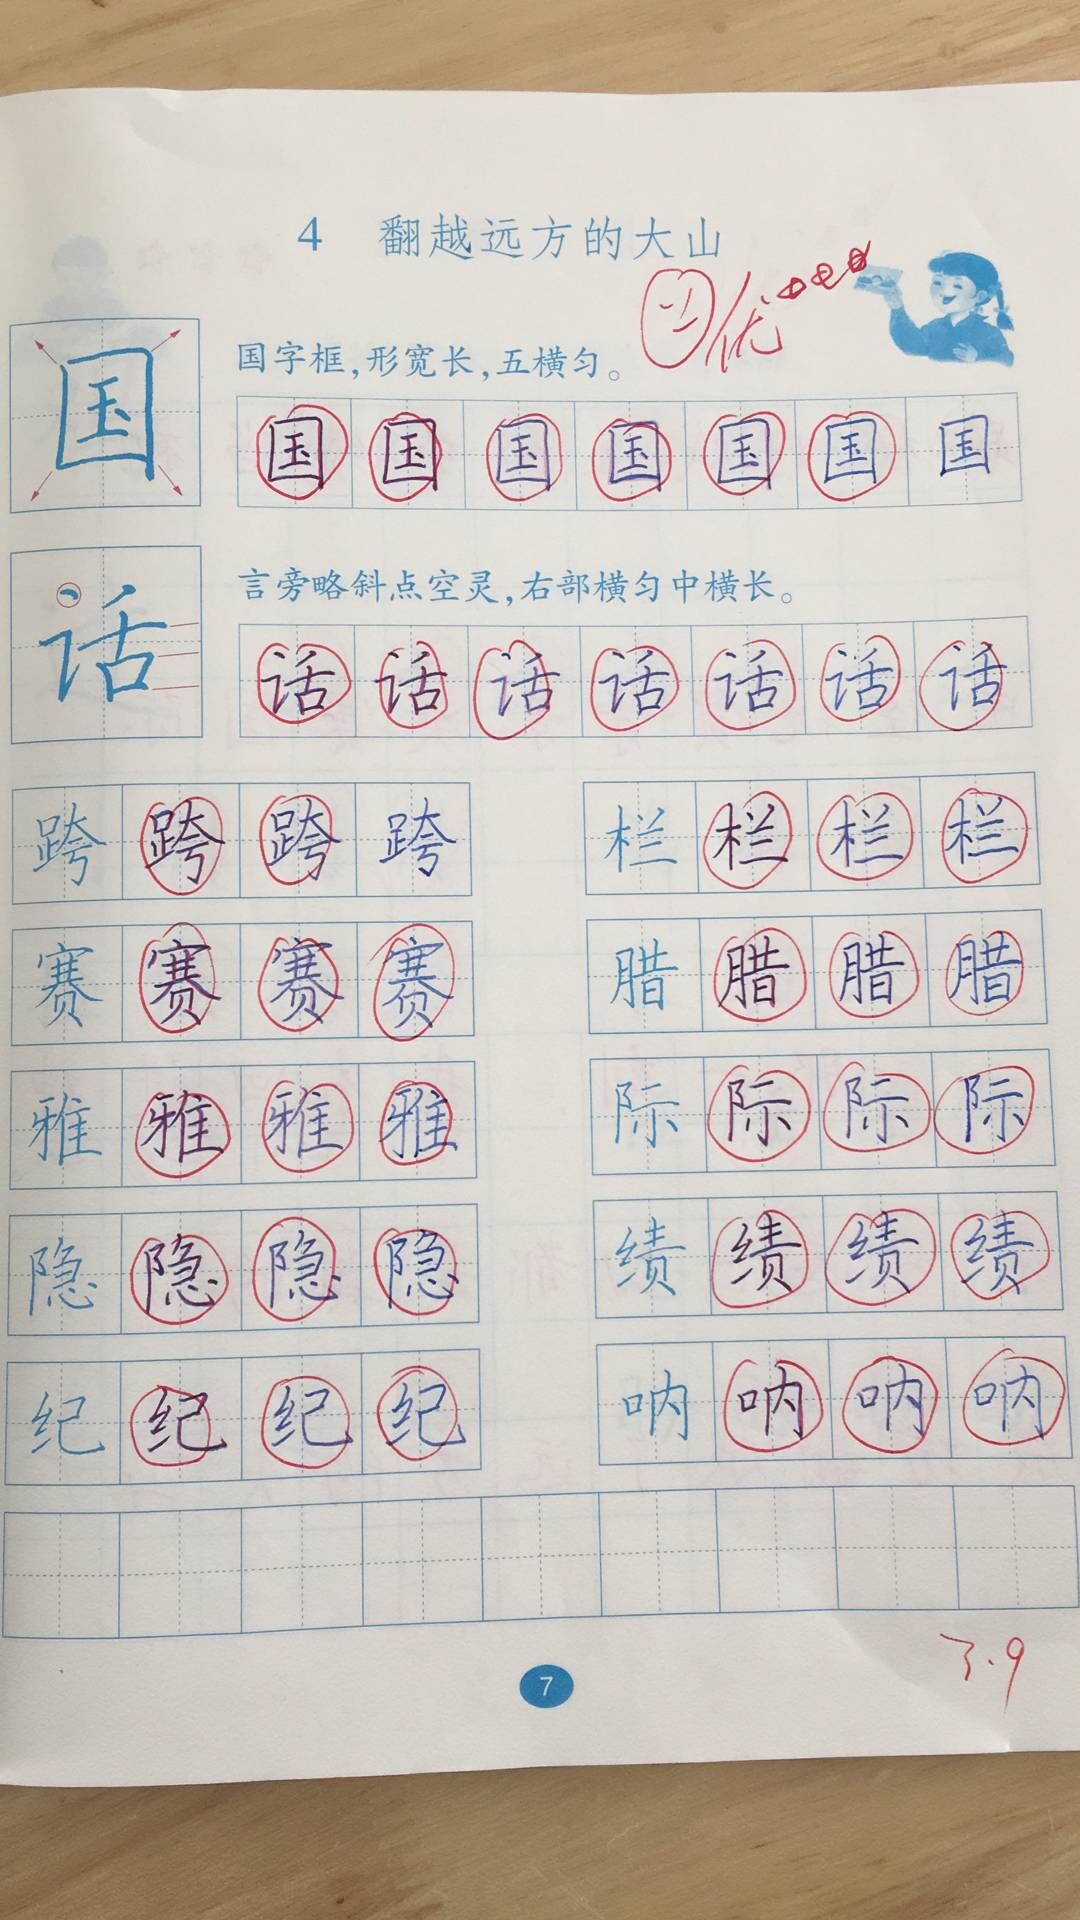 4 翻越远方的大山
优
国
国字框，形宽长，五横匀。
国 国 国 国 国 国 国
话
言旁略斜点空灵，右部横匀中横长。
话 话 话 话 话 话 话
跨 跨 跨 跨 栏 栏 栏 栏
赛 赛 赛 赛 腊 腊 腊 腊
雅 雅 雅 雅 际 际 际 际
隐 隐 隐 隐 绩 绩 绩 绩
纪 纪 纪 纪 呐 呐 呐 呐
3.9
7